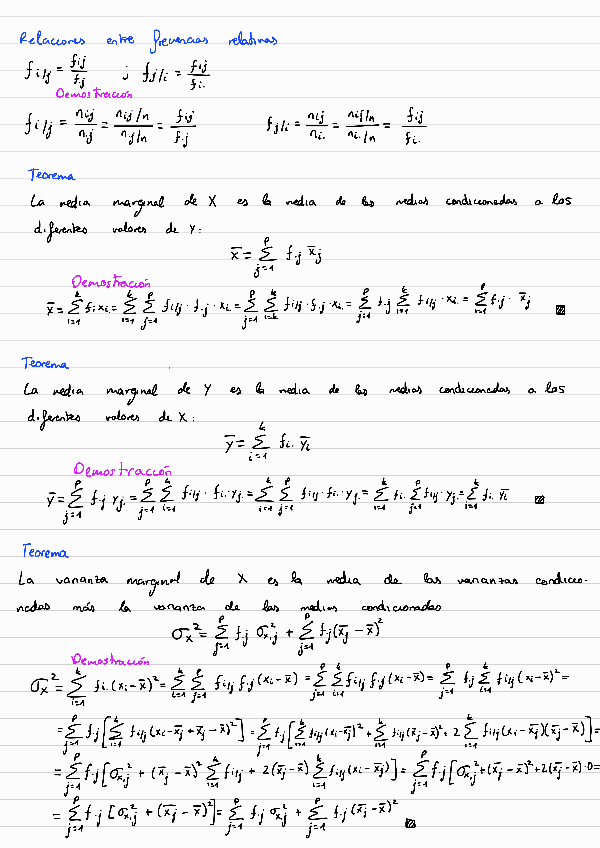 Relaciones entre frecuencias relativas
f i/j = fij / f.j ; f j/i = fij / fi.
Demostración
f i/j = nij / n.j = (nij/n) / (n.j/n) = fij / f.j    f j/i = nij / ni. = (nij/n) / (ni./n) = fij / fi.
Teorema
La media marginal de X es la media de las medias condicionadas a los
diferentes valores de Y:
x̄ = Σ_{j=1}^{p} f.j x̄j
Demostración
x̄ = Σ_{i=1}^{k} fi. xi = Σ_{i=1}^{k} Σ_{j=1}^{p} fi/j · f.j · xi = Σ_{j=1}^{p} Σ_{i=1}^{k} fi/j · f.j · xi = Σ_{j=1}^{p} f.j Σ_{i=1}^{k} fi/j · xi = Σ_{i=1}^{p} f.j · x̄j
Teorema
La media marginal de Y es la media de las medias condicionadas a los
diferentes valores de X:
ȳ = Σ_{i=1}^{k} fi. ȳi
Demostración
ȳ = Σ_{j=1}^{p} f.j yj = Σ_{j=1}^{p} Σ_{i=1}^{k} fi/j · fi. yj = Σ_{i=1}^{k} Σ_{j=1}^{p} fi/j · fi. yj = Σ_{i=1}^{k} fi. Σ_{j=1}^{p} fi/j · yj = Σ_{i=1}^{k} fi. ȳi
Teorema
La varianza marginal de X es la media de las varianzas condicio-
nadas más la varianza de las medias condicionadas
σx² = Σ_{j=1}^{p} f.j σ²x,j + Σ_{j=1}^{p} f.j (x̄j − x̄)²
Demostración
σx² = Σ_{i=1}^{k} fi. (xi − x̄)² = Σ_{i=1}^{k} Σ_{j=1}^{p} fi/j f.j (xi − x̄) = Σ_{j=1}^{p} Σ_{i=1}^{k} fi/j f.j (xi − x̄) = Σ_{j=1}^{p} f.j Σ_{i=1}^{k} fi/j (xi − x̄)² =
= Σ_{j=1}^{p} f.j [Σ_{i=1}^{k} fi/j (xi − x̄j + x̄j − x̄)²] = Σ_{j=1}^{p} f.j [Σ_{i=1}^{k} fi/j (xi − x̄j)² + Σ_{i=1}^{k} fi/j (x̄j − x̄)² + 2 Σ_{i=1}^{k} fi/j (xi − x̄j)(x̄j − x̄)] =
= Σ_{j=1}^{p} f.j [σ²x,j + (x̄j − x̄)² Σ_{i=1}^{k} fi/j + 2(x̄j − x̄) Σ_{i=1}^{k} fi/j (xi − x̄j)] = Σ_{j=1}^{p} f.j [σ²x,j + (x̄j − x̄)² + 2(x̄j − x̄) · 0 =
= Σ_{j=1}^{p} f.j [σ²x,j + (x̄j − x̄)²] = Σ_{j=1}^{p} f.j σ²x,j + Σ_{j=1}^{p} f.j (x̄j − x̄)²